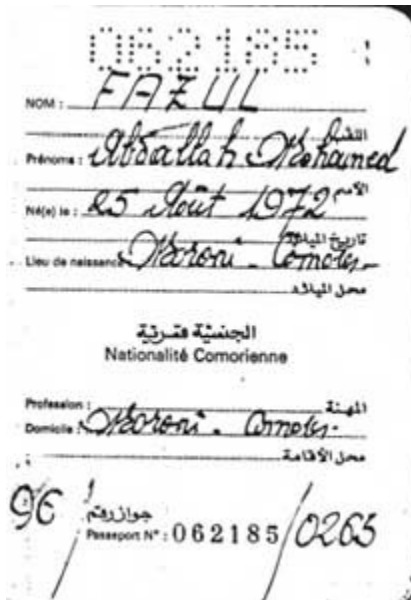 062185 1
NOM : FAZUL
اللقب
Prénoms : Abdallah Mohamed
الاسم
Né(e) le : 25 Août 1972
تاريخ الميلاد
Lieu de naissance Moroni - Comores -
محل الميلاد
الجنسيّة قمريّة
Nationalité Comorienne
Profession : المهنة
Domicile : Moroni - Comores -
محل الاقامة
96 / جواز رقم / 0265
Passeport N° : 062185